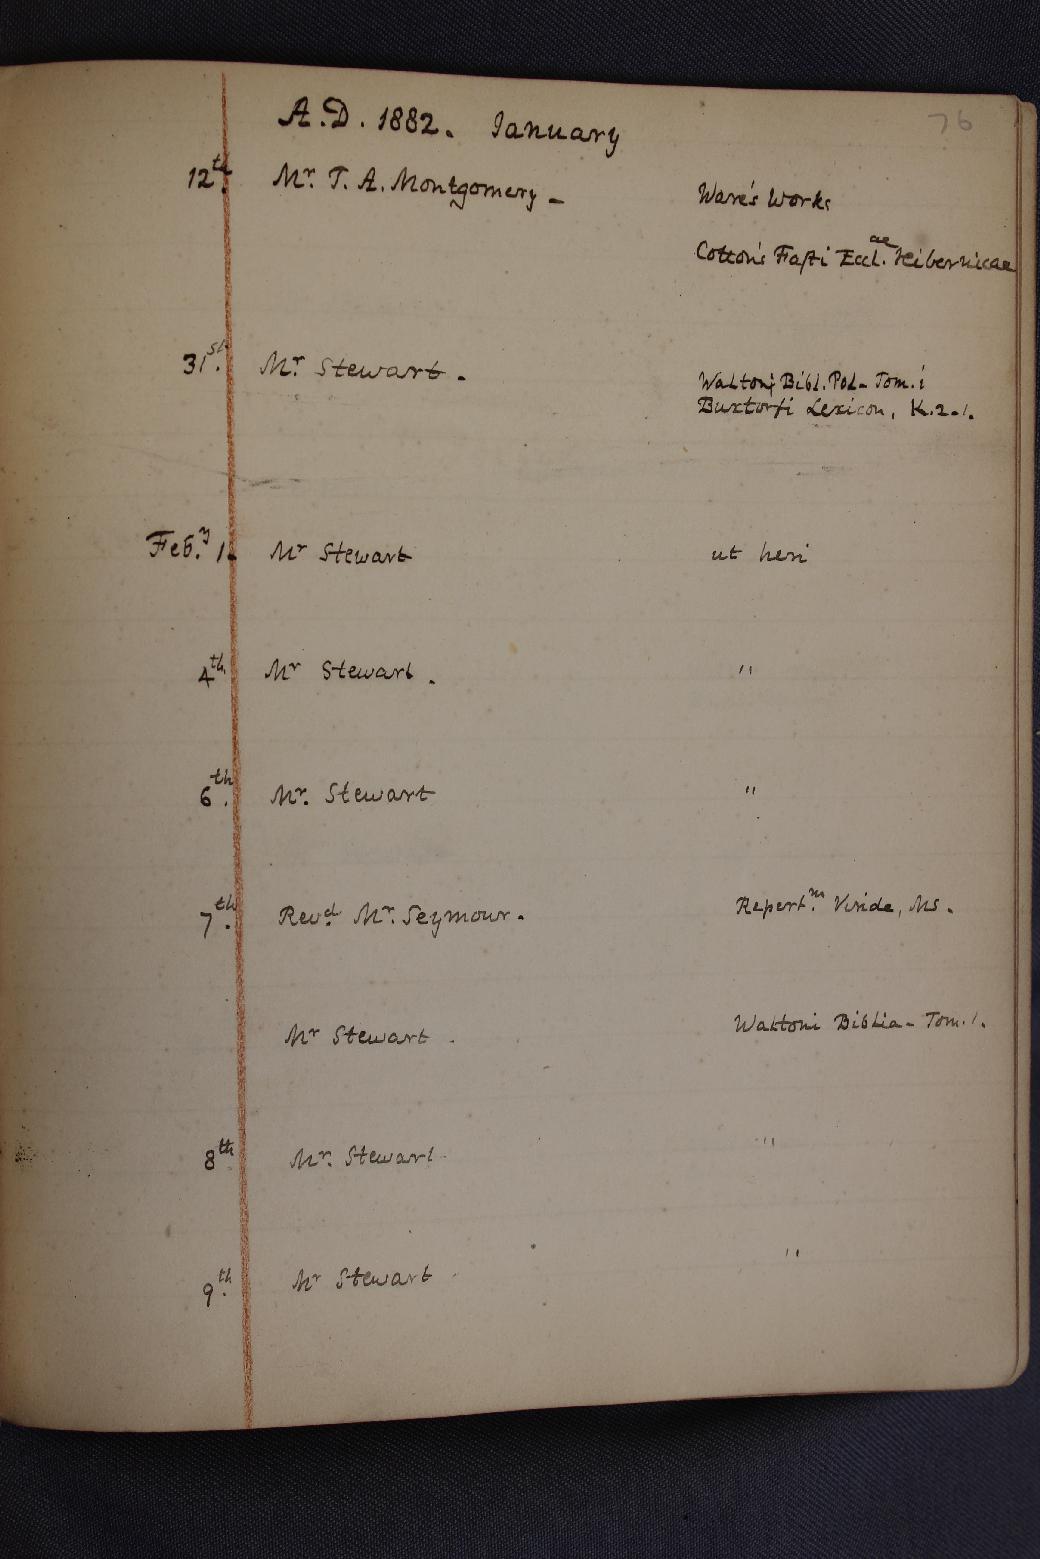 76
A.D. 1882. January
12th. Mr. T. A. Montgomery - Ware's Works
Cotton's Fasti Eccl.ae Hibernicae
31st. Mr. Stewart. Waltoni Bibl. Pol- Tom. i
Buxtorfi Lexicon, K.2-1.
Feb.y 1. Mr Stewart ut heri
4th Mr Stewart. "
6th. Mr. Stewart "
7th. Revd. Mr. Seymour. Repert.m Viride, Ms.
Mr Stewart. Waltoni Biblia- Tom. 1.
8th. Mr. Stewart. "
9th. Mr Stewart "